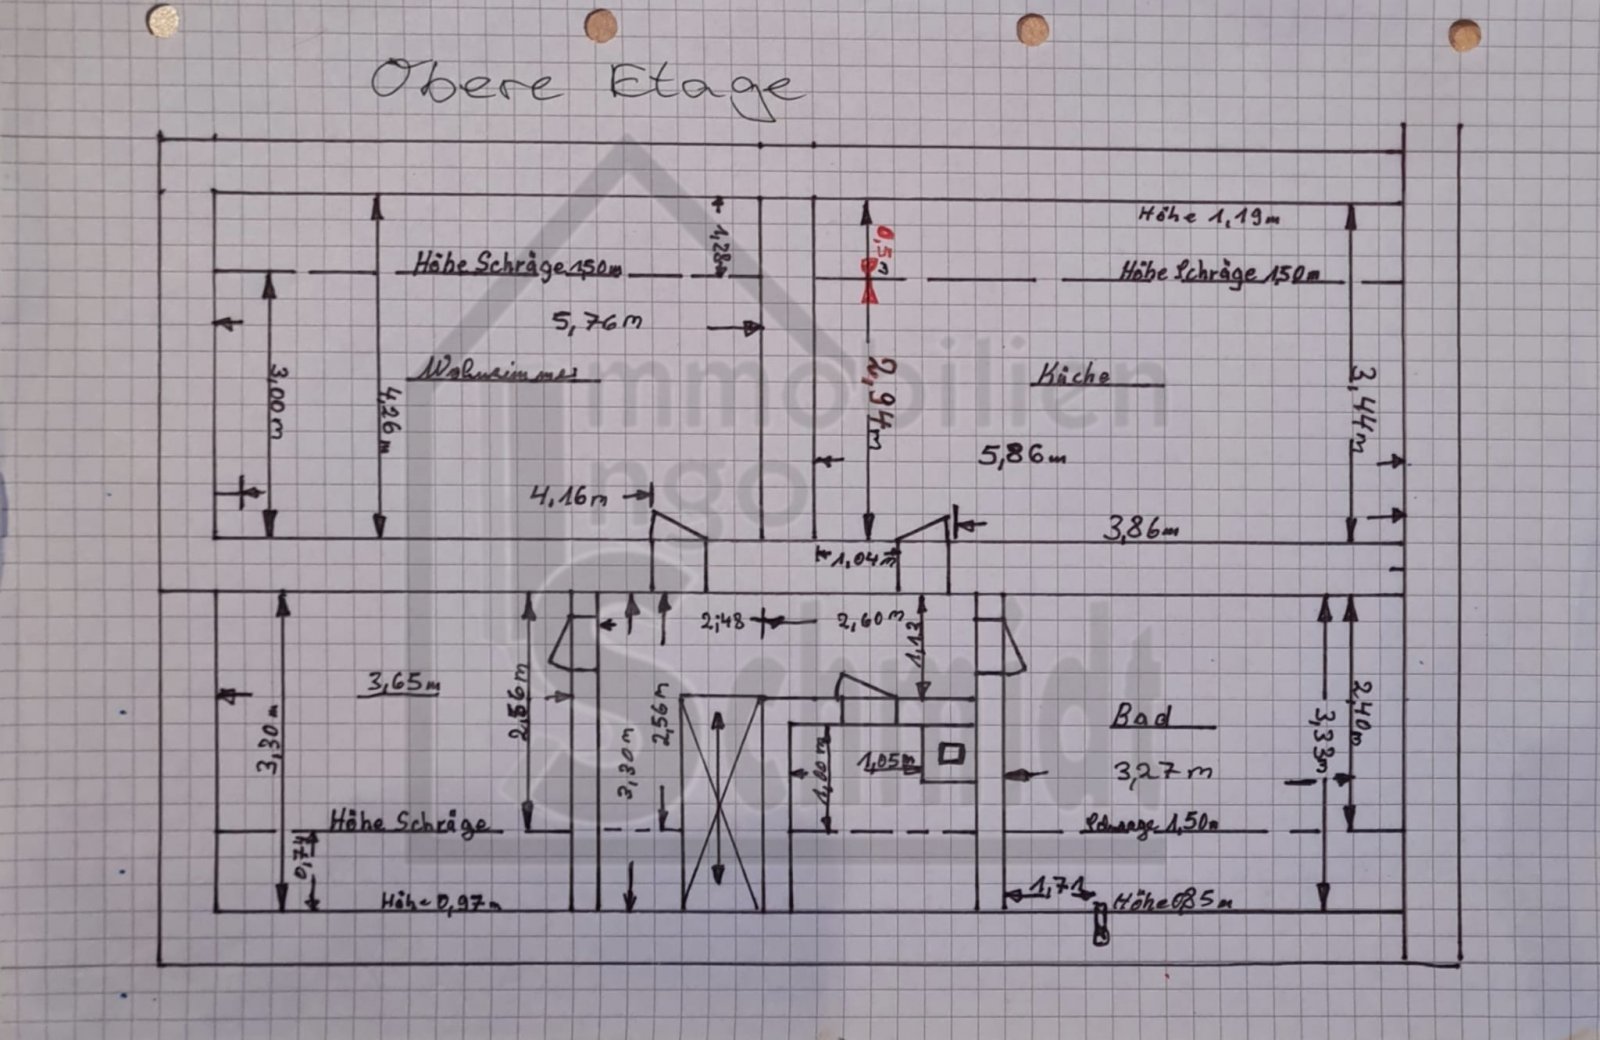 Obere Etage
Höhe 1,19m
0,5
1,28m
Höhe Schräge 1,50m
Höhe Schräge 1,50m
5,76m
Wohnzimmer
Küche
3,00m
4,26m
2,94m
3,44m
5,86m
4,16m
3,86m
1,04m
2,48
2,60m
1,13
3,65m
2,56m
2,56m
3,30m
3,30m
Bad
2,40m
3,33m
1,05m
1,00m
3,27m
Höhe Schräge
1,50m
0,74
1,71
Höhe 0,97m
Höhe 0,85m
Immobilien
Ingo
Schmidt